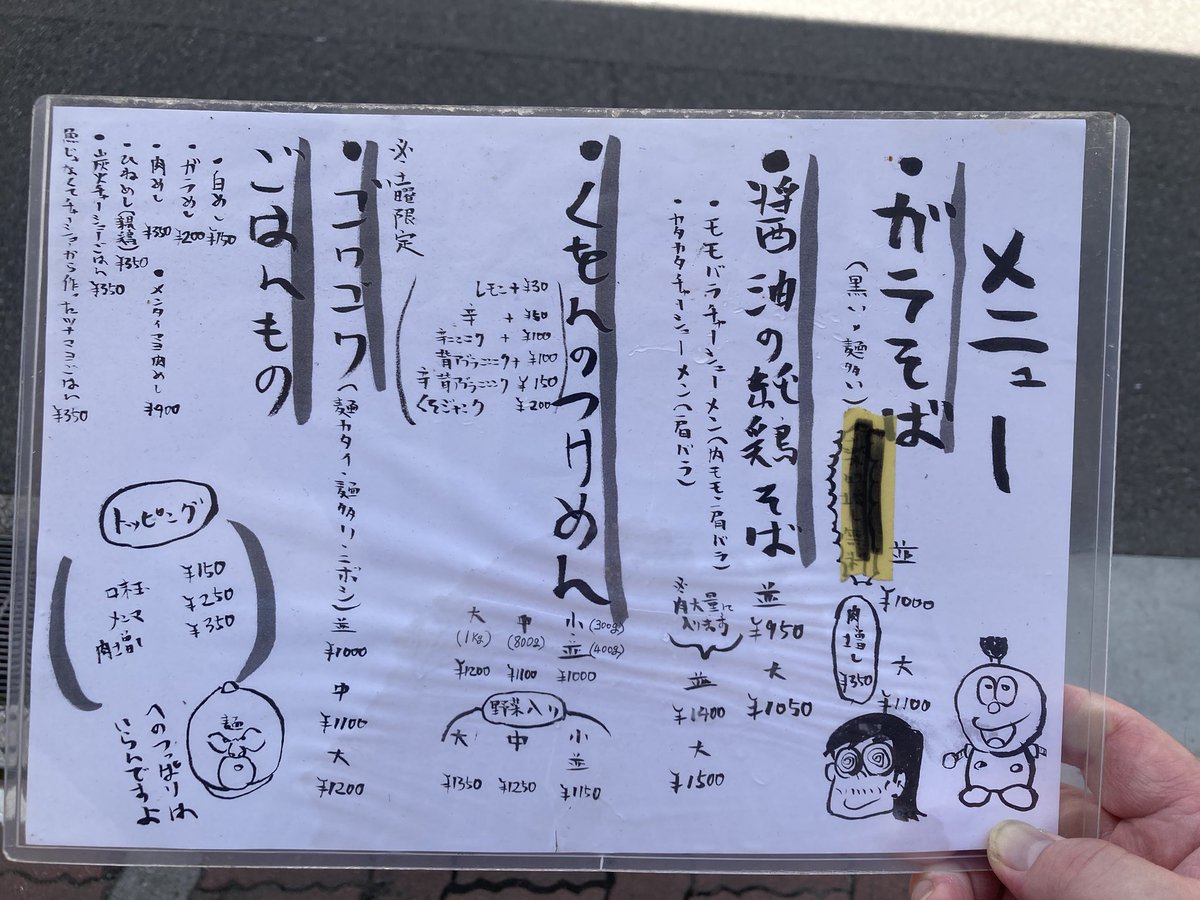 メニュー
・ガラそば
(黒い・麺多い)
並
¥1000
大
¥1100
肉増し
¥350
・醤油の純鶏そば
並
¥950
大
¥1050
・モモバラチャーシューメン(内モモ、肩バラ)
・カタカタチャーシューメン(肩バラ)
※肉大量に
入ってます
並
¥1400
大
¥1500
・くをんのつけめん
小(300g)
並(400g)
¥1000
中
(800g)
¥1100
大
(1Kg)
¥1200
野菜入り
小
並
¥1150
中
¥1250
大
¥1350
レモン+¥30
辛 + ¥50
辛ニンニク + ¥100
背アブラニンニク+¥100
辛背アブラニンニク ¥150
くをジャンク ¥200
※土曜限定
・ゴワゴワ(麺カタイ・麺多い・ニボシ)
並
¥1000
中
¥1100
大
¥1200
ごはんもの
・白めし ¥150
・ガラめし ¥200
・肉めし ¥350
・メンタイマヨ肉めし ¥400
・ひねめし(親鶏) ¥350
・炭火チャーシューごはん ¥350
魚じゃなくてチャーシューから作ったツナマヨごはん ¥350
トッピング
味玉 ¥150
メンマ ¥250
肉増し ¥350
麺
へのつっぱりは
いらんですよ